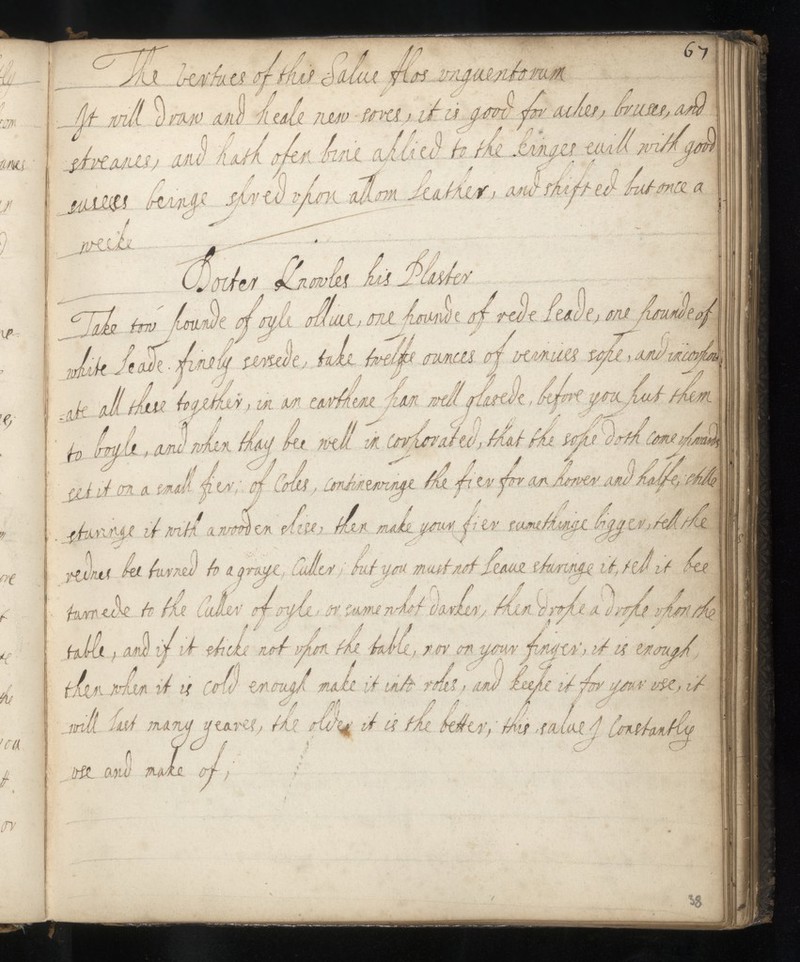 67
The vertues of this Salve flos unguentorum
It will draw and heale new sores, it is good for aches, bruses, and
streanes, and hath ofen bine aplied to the kinges evill with good
suseses beinge spred upon allom leather, and shifted but once a
weeke
Docter Knowles his Plaster
Take tow pounde of oyle ollive, one pounde of rede leade, one pounde of
white leade finely sersede, take twelfe ounces of venises sope, and incorpor
=ate all these together, in an earthene pan well glasede, before you put them
to boyle, and when thay bee well in corporated, that the sope doth come upwards
set it on a small fier, of Coles, continewinge the fier for an hower and halfe, stille
sturinge it with a wooden slise, then make your fier sumthinge bigger, tell the
rednes bee turned to a graye, Culler, but you must not leave sturinge it, tell it bee
turnede to the Culler of oyle, or sumewhot darker, then drope a drope upon the
table, and if it sticke not upon the table, nor on your finger, it is enough,
then when it is cold enough make it into roles, and keepe it for your use, it
will last many yeares, the older it is the better, this salve J Constantly
use and make of,
38